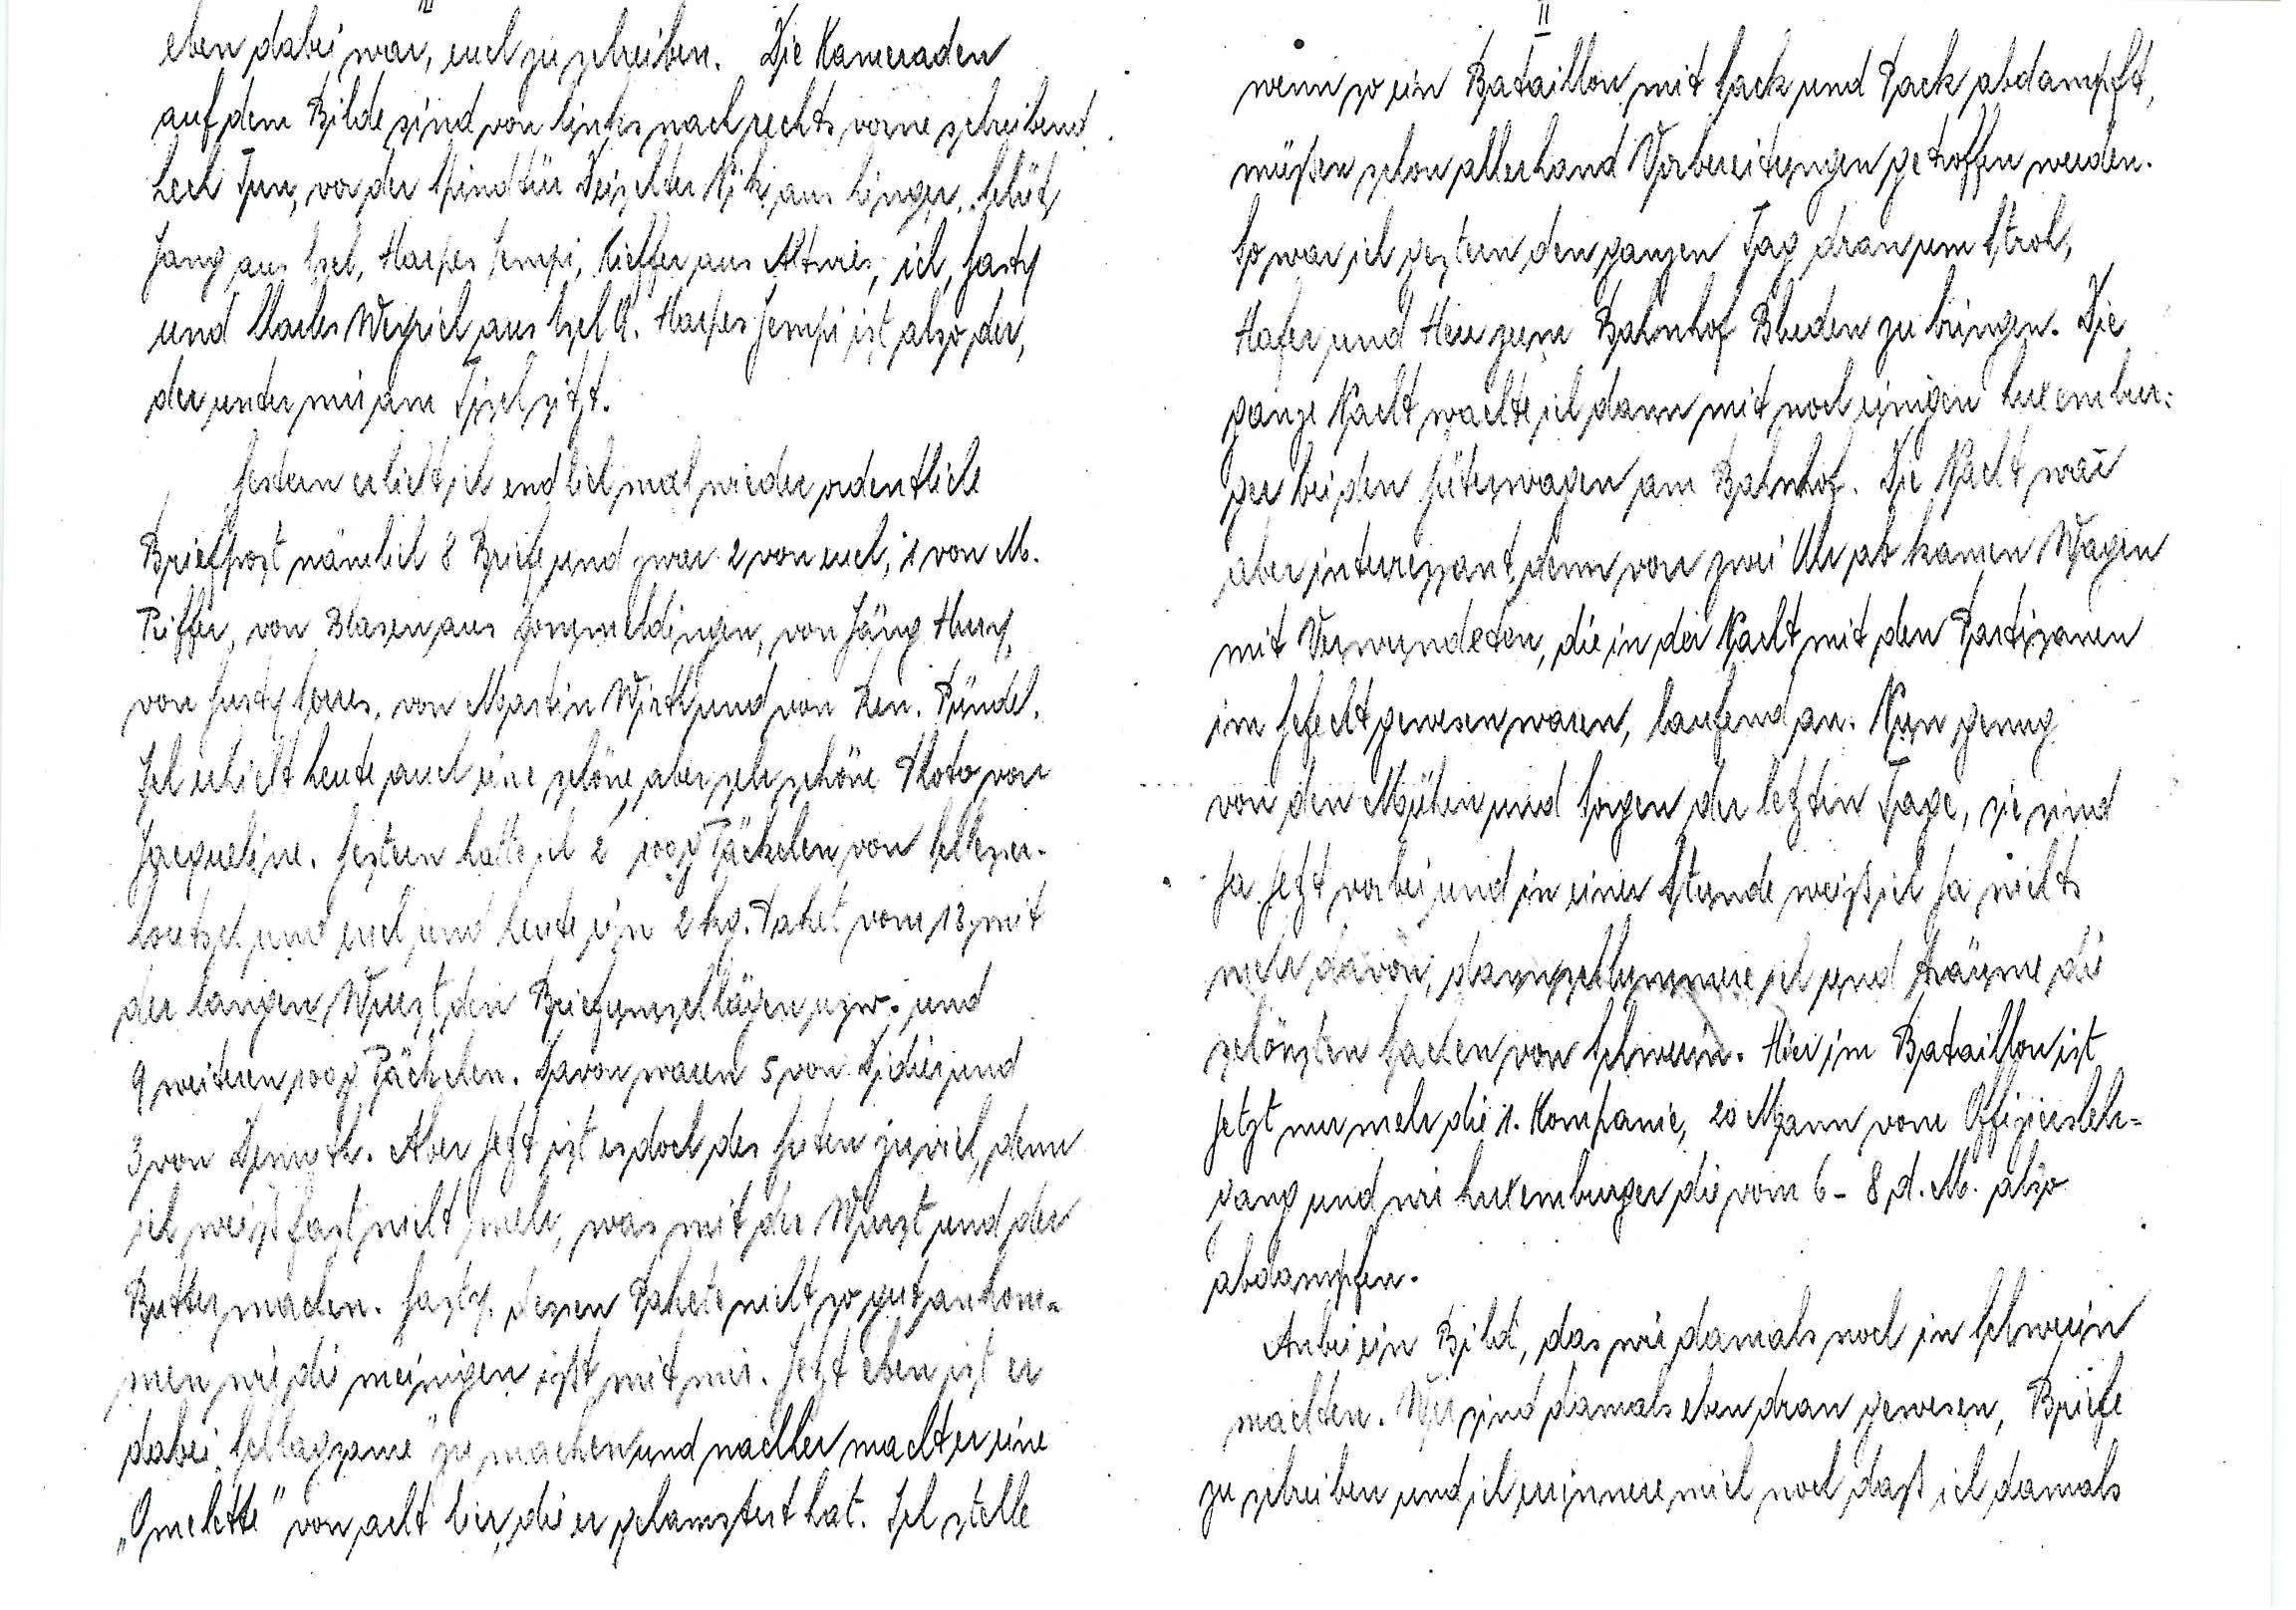 II
wenn so ein Bataillon mit Sack und Pack abdampft,
müßen schon allerhand Vorbereitungen getroffen werden.
So war ich gestern den ganzen Tag dran um Stroh,
Hafer und Heu zum Bahnhof Bluden zu bringen. Die
ganze Nacht wachte ich dann mit noch einigen Luxembur-
ger bei den Güterwagen am Bahnhof. Die Nacht war
aber interessant, denn von zwei Uhr ab kamen Wagen
mit Verwundeten, die in der Nacht mit den Partisanen
im Gefecht gewesen waren, laufend an. Nun genug
von den Mühen und Sorgen der letzten Tage, sie sind
ja jetzt vorbei und in einer Stunde weiß ich ja nichts
mehr davon, dann schlummere ich und träume die
schönsten Sachen von Schwerin. Hier im Bataillon ist
jetzt nur mehr die 1. Kompanie, 20 Mann vom Offiziersleh-
gang und wir Luxemburger die vom 6-8 d. M. also
abdampfen.
Anbei ein Bild, das wir damals noch in Schwerin
machten. Wir sind damals eben dran gewesen, Briefe
zu schreiben und ich erinnere mich noch daß ich damals
III
eben dabei war, euch zu schreiben. Die Kameraden
auf dem Bilde sind von links nach rechts vorne schreibend
Lech Jun, vor der Spindtür Deischter Nik aus Linger, Schütz
Jang aus Esch, Harpes Jempi, Kieffer aus Altwies, ich, Gasty
und Charles Weyrich aus Esch A. Harpes Jempi ist also der,
der unter mir am Tisch sitzt.
Gestern erhielt ich endlich mal wieder ordentliche
Briefpost nämlich 8 Briefe und zwar 2 von euch, 1 von M.
Piffer, von Blasen aus, von Jäng Hury,
von Gusty, von Martin Wirth und von Ren. Pündel.
Ich erhielt heute auch eine schöne, aber sehr schöne Photo von
Jacqueline. Gestern hatte ich 2 100g Päckchen von
und euch und heute ein 2 kg. Paket vom 13 mit
der langen Wurst, den Briefumschlägen usw. und
9 weiteren 100g Päckchen. Davon waren 5 von Didier und
3 von Demuth. Aber jetzt ist es doch des Guten zuviel, denn
ich weiß fast nicht mehr, was mit der Wurst und der
Butter machen. Gasty, dessen Pakete nicht so gut ankom-
men wie die meinigen ißt mit mir. Jetzt eben ist er
dabei „Schlagsame" zu machen und nachher macht er eine
„Omelette" von acht Eier, die er gehamstert hat. Ich stelle